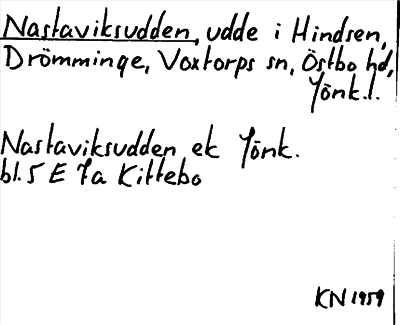 Nastaviksudden, udde i Hindsen,
Drömminge, Voxtorps sn, Östbo hd,
Jönk.l.
Nastaviksudden ek Jönk.
bl. 5 E 7a Kittebo
KN 1959